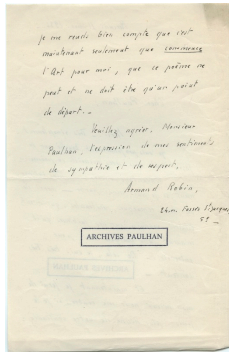 je me rends bien compte que c'est
maintenant seulement que commence
l'Art pour moi, que ce poème ne
peut et ne doit être qu'un point
de départ._
Veuillez agréer, Monsieur
Paulhan, l'expression de mes sentiments
de sympathie et de respect,
Armand Robin,
Fossés St Jacques,
5e _
ARCHIVES PAULHAN